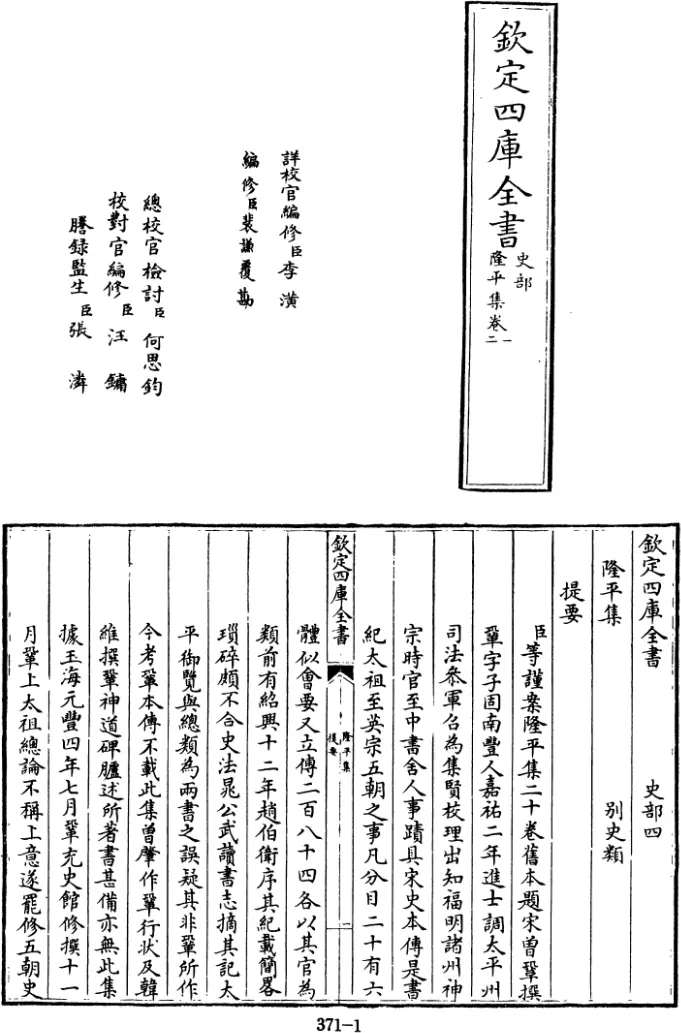 欽定四庫全書
史部
隆平集卷一
二
詳校官編修臣李潢
編修臣裴謙覆勘
總校官檢討臣何思鈞
校對官編修臣汪鏞
謄錄監生臣張潾
欽定四庫全書 史部四
隆平集 別史類
提要
臣等謹案隆平集二十卷舊本題宋曾鞏撰
鞏字子固南豐人嘉祐二年進士調太平州
司法叅軍召為集賢校理出知福明諸州神
宗時官至中書舍人事蹟具宋史本傳是書
紀太祖至英宗五朝之事凡分目二十有六
欽定四庫全書
隆平集
提要
一
體似會要又立傳二百八十四各以其官為
類前有紹興十二年趙伯衛序其紀載簡畧
瑣碎頗不合史法晁公武讀書志摘其記太
平御覽與總類為兩書之誤疑其非鞏所作
今考鞏本傳不載此集曾肇作鞏行狀及韓
維撰鞏神道碑臚述所著書甚備亦無此集
據玉海元豐四年七月鞏充史館修撰十一
月鞏上太祖總論不稱上意遂罷修五朝史
371-1